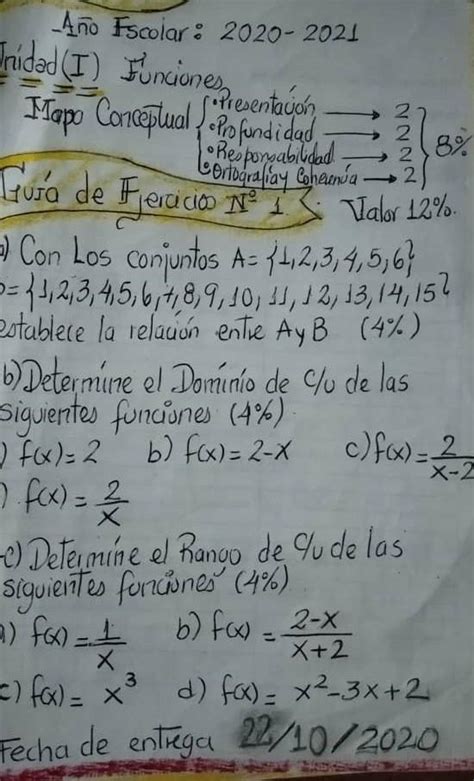 Año Escolar: 2020-2021
Unidad (I) Funciones
Mapa Conceptual
•Presentación → 2
•Profundidad → 2
•Responsabilidad → 2
•Ortografía y Coherencia → 2
8%
Guía de Ejercicio Nº 1. Valor 12%.
a) Con Los conjuntos A= {1,2,3,4,5,6}
B= {1,2,3,4,5,6,7,8,9,10,11,12,13,14,15}
establece la relación entre A y B (4%)
b) Determine el Dominio de c/u de las
siguientes funciones (4%)
) f(x)=2 b) f(x)=2-x c) f(x)=2/x-2
) f(x)=2/x
c) Determine el Rango de c/u de las
siguientes funciones (4%)
a) f(x)=1/x b) f(x)=2-x/x+2
c) f(x)= x³ d) f(x)= x²-3x+2
Fecha de entrega 22/10/2020